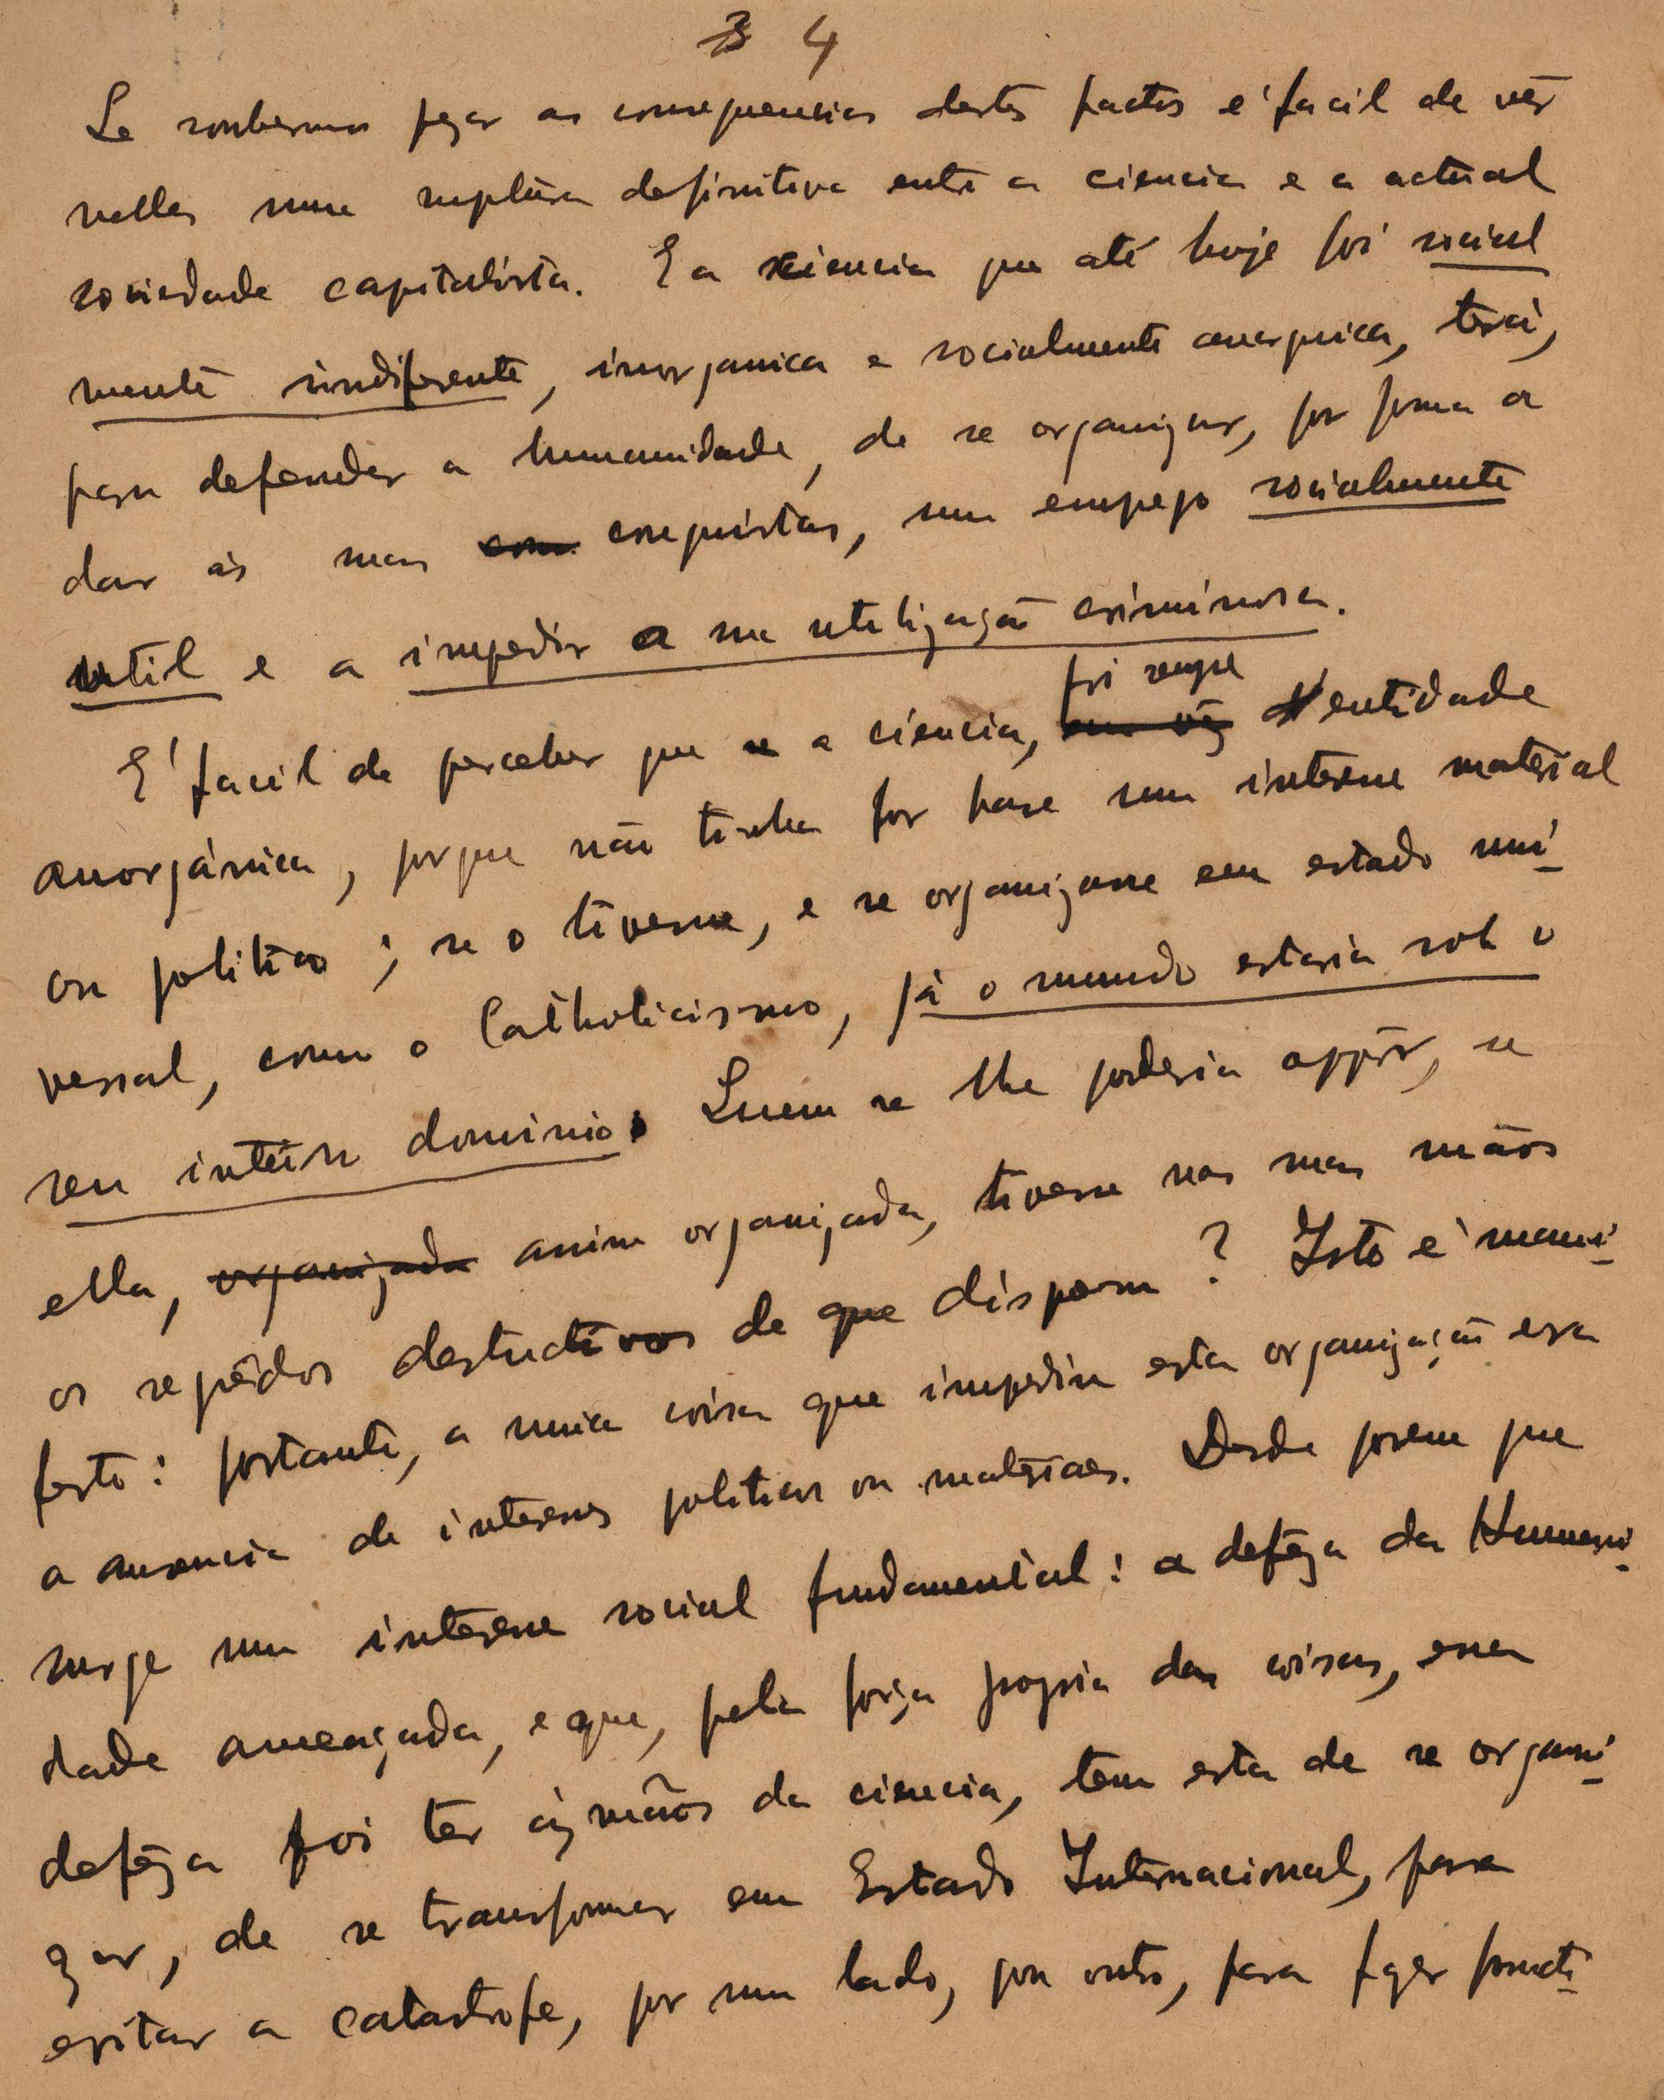 3 4
Se soubermos pezar as consequencias destes factos é facil de vêr
nelles uma ruptura definitiva entre a ciencia e a actual
sociedade capitalista. E a ciencia que até hoje foi social
mente indiferente, inorganica e socialmente anarquica, terá,
para defender a humanidade, de se organizar, por forma a
dar ás suas com conquistas, um emprego socialmente
util e a impedir a sua utilização criminosa.
foi sempre
E' facil de perceber que se a ciencia, em vez d'entidade
anorgánica, porque não tinha por base um interesse material
ou politico; se o tivesse, e se organizasse em estado uni-
versal, como o Catholicismo, já o mundo estaria sob o
seu inteiro dominio. Quem se lhe poderia oppôr, se
ella, organizada assim organizada, tivesse nas suas mãos
os segrêdos destructivos de que dispõem? Isto é mani-
festo: portanto, a unica coisa que impediu esta organização era
a ausencia de interesses politicos ou materiaes. Desde porem que
surge um interesse social fundamental: a defêza da Humani-
dade ameaçada, e que, pela força propria das coisas, essa
defêza foi ter ás mãos da ciencia, tem esta de se organi-
zar, de se transformar em Estado Internacional, para
evitar a catastrofe, por um lado, por outro, para fazer fructi-